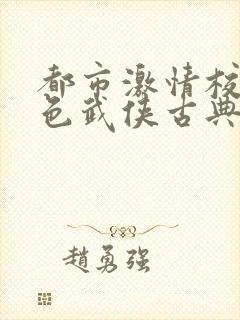 都市激情校
色武侠古典
趙勇强